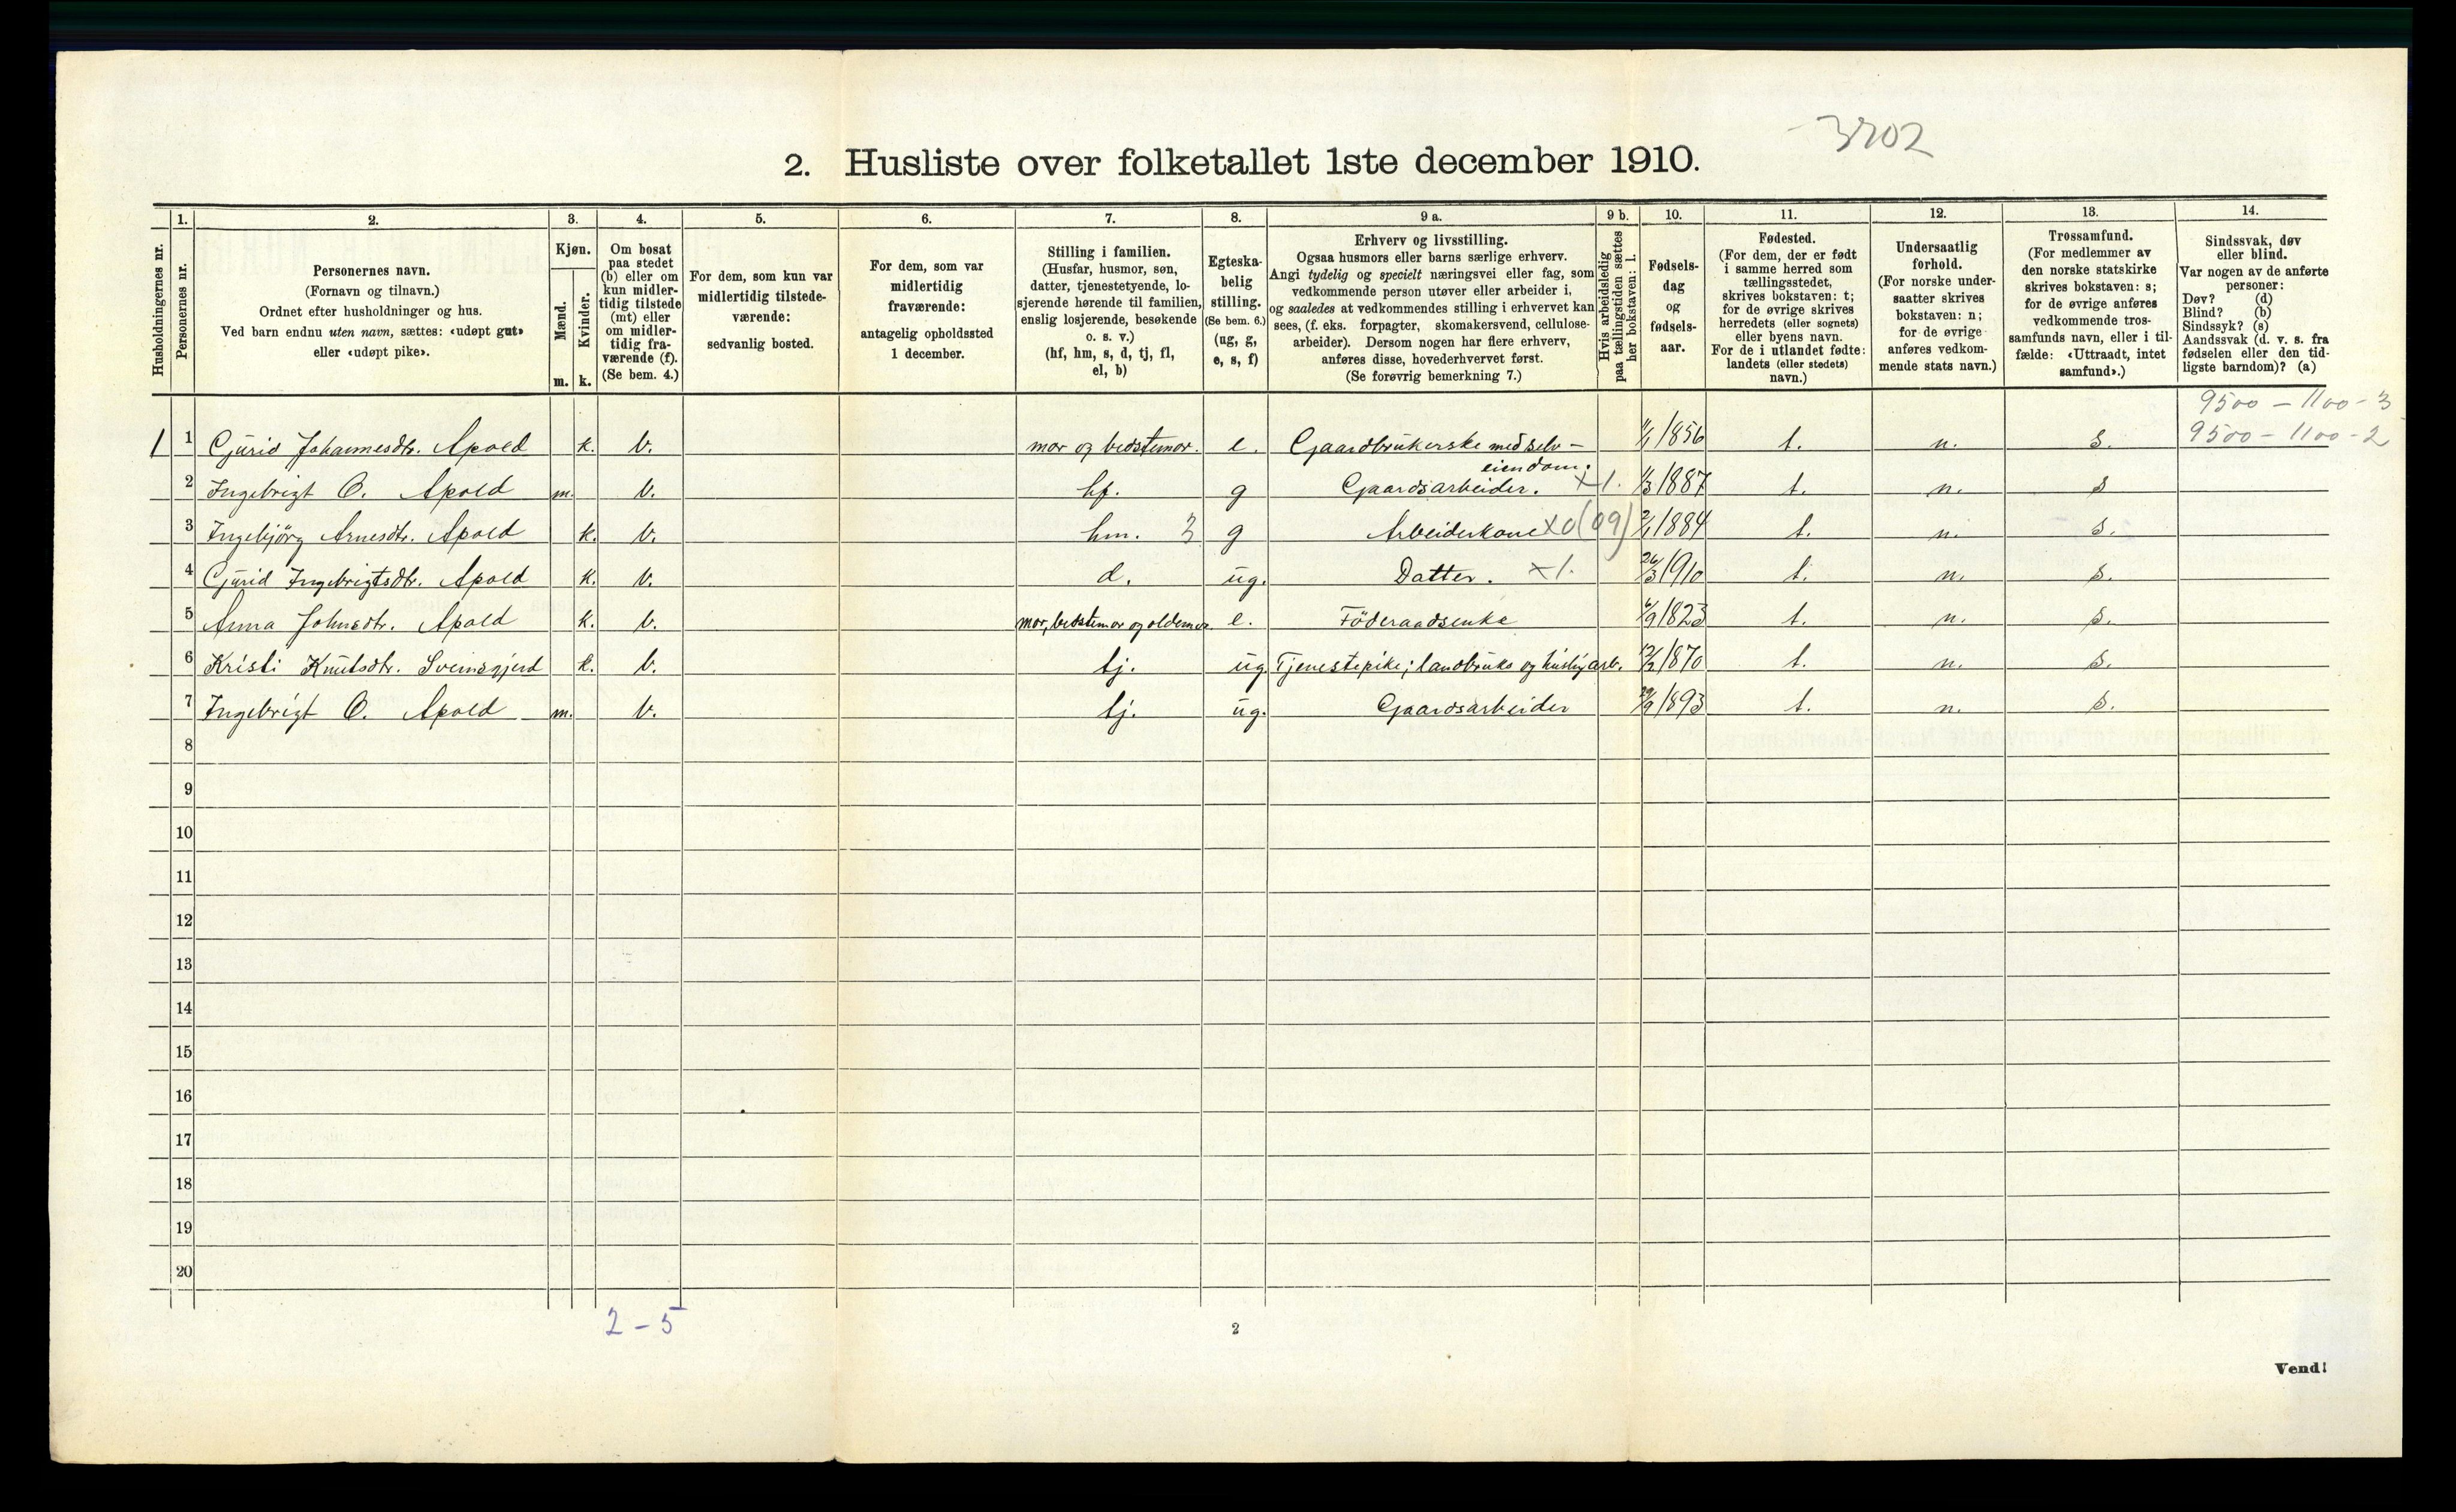 3702
2. Husliste over folketallet 1ste december 1910.
Husholdningernes nr.
1.
Personernes nr.
2.
Personernes navn.
(Fornavn og tilnavn.)
Ordnet efter husholdninger og hus.
Ved barn endnu uten navn, sættes: «udøpt gut»
eller «udøpt pike».
3.
Kjøn.
Mænd.
Kvinder.
m. k.
4.
Om bosat
paa stedet
(b) eller om
kun midler-
tidig tilstede
(mt) eller
om midler-
tidig fra-
værende (f).
(Se bem. 4.)
5.
For dem, som kun var
midlertidig tilstede-
værende:
sedvanlig bosted.
6.
For dem, som var
midlertidig
fraværende:
antagelig opholdssted
1 december.
7.
Stilling i familien.
(Husfar, husmor, søn,
datter, tjenestetyende, lo-
sjerende hørende til familien,
enslig losjerende, besøkende
o. s. v.)
(hf, hm, s, d, tj, fl,
el, b)
8.
Egteska-
belig
stilling.
(Se bem. 6.)
(ug, g,
e, s, f)
9 a.
Erhverv og livsstilling.
Ogsaa husmors eller barns særlige erhverv.
Angi tydelig og specielt næringsvei eller fag, som
vedkommende person utøver eller arbeider i,
og saaledes at vedkommendes stilling i erhvervet kan
sees, (f. eks. forpagter, skomakersvend, cellulose-
arbeider). Dersom nogen har flere erhverv,
anføres disse, hovederhvervet først.
(Se forøvrig bemerkning 7.)
9 b.
Hvis arbeidsledig
paa tællingstiden sættes
her bokstaven: l.
10.
Fødsels-
dag
og
fødsels-
aar.
11.
Fødested.
(For dem, der er født
i samme herred som
tællingsstedet,
skrives bokstaven: t;
for de øvrige skrives
herredets (eller sognets)
eller byens navn.
For de i utlandet fødte:
landets (eller stedets)
navn.)
12.
Undersaatlig
forhold.
(For norske under-
saatter skrives
bokstaven: n;
for de øvrige
anføres vedkom-
mende stats navn.)
13.
Trossamfund.
(For medlemmer av
den norske statskirke
skrives bokstaven: s;
for de øvrige anføres
vedkommende tros-
samfunds navn, eller i til-
fælde: «Uttraadt, intet
samfund».)
14.
Sindssvak, døv
eller blind.
Var nogen av de anførte
personer:
Døv? (d)
Blind? (b)
Sindssyk? (s)
Aandssvak (d. v. s. fra
fødselen eller den tid-
ligste barndom)? (a)
9500 - 1100 - 3
9500 - 1100 - 2
1 1 Gjurid Johannesdtr. Apold k. b. mor og bedstemor. e. Gaardbrukerske med selv-eiendom. 1856 t. n. s.
2 Ingebrigt O. Apold m. b. hf. g Gaardsarbeider. x 1. 1/3 1887 t. n. s
3 Ingebjörg Arnesdtr. Apold k. b. hm. 3 g Arbeiderkone x0(09) 2/1 1884 t. n. s.
4 Gjurid Ingebrigtsdtr. Apold k. b. d. ug. Datter. x 1. 26/3 1910 t. n. s.
5 Anna Johnsdtr. Apold k. b. mor, bedstemor og oldemor e. Föderaadsenke 6/9 1823 t. n. s.
6 Kristi Knutsdtr. Sveinsgjerd k. b. tj. ug. Tjenestepike; landbruks og huslig arb. 1870 t. n. s.
7 Ingebrigt O. Apold m. b. tj. ug. Gaardsarbeider 29/9 1893 t. n. s.
8
9
10
11
12
13
14
15
16
17
18
19
20
2 - 5
2
Vend!